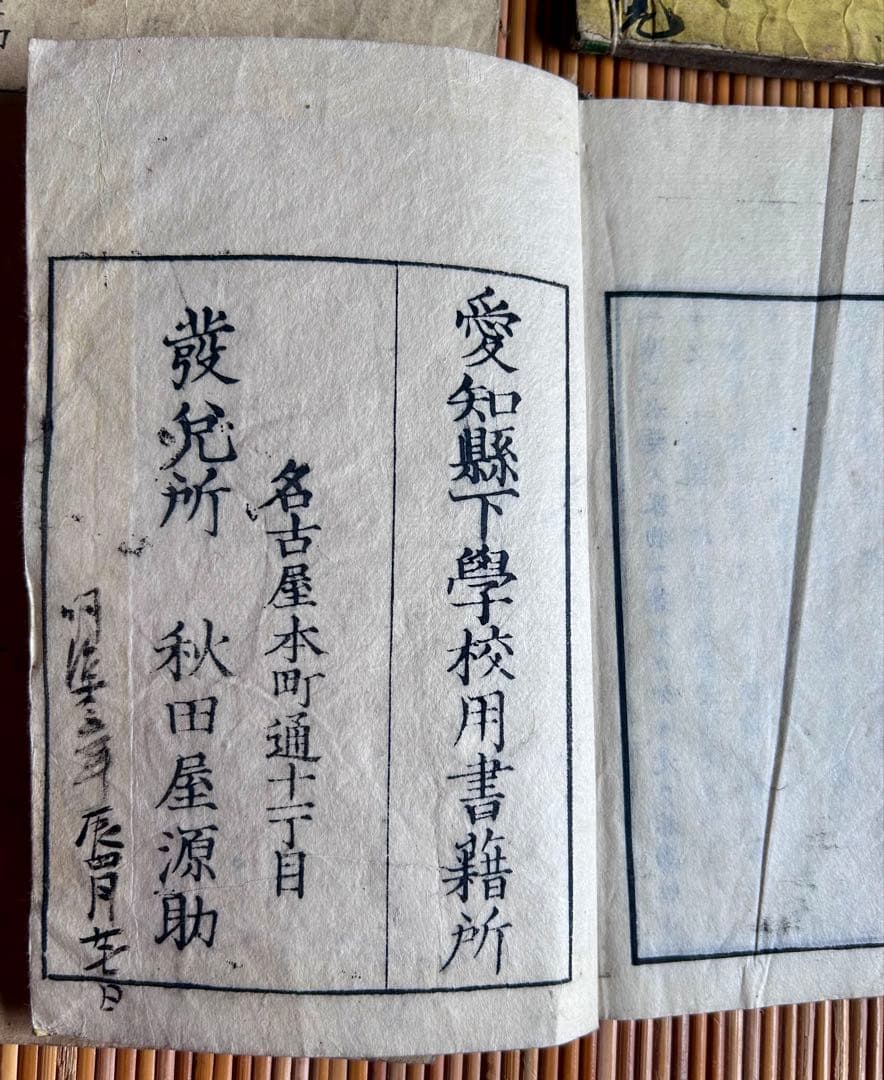 愛知縣下學校用書籍所
名古屋本町通十一丁目
發兌所 秋田屋源助
明治十三年 辰四月廿七日